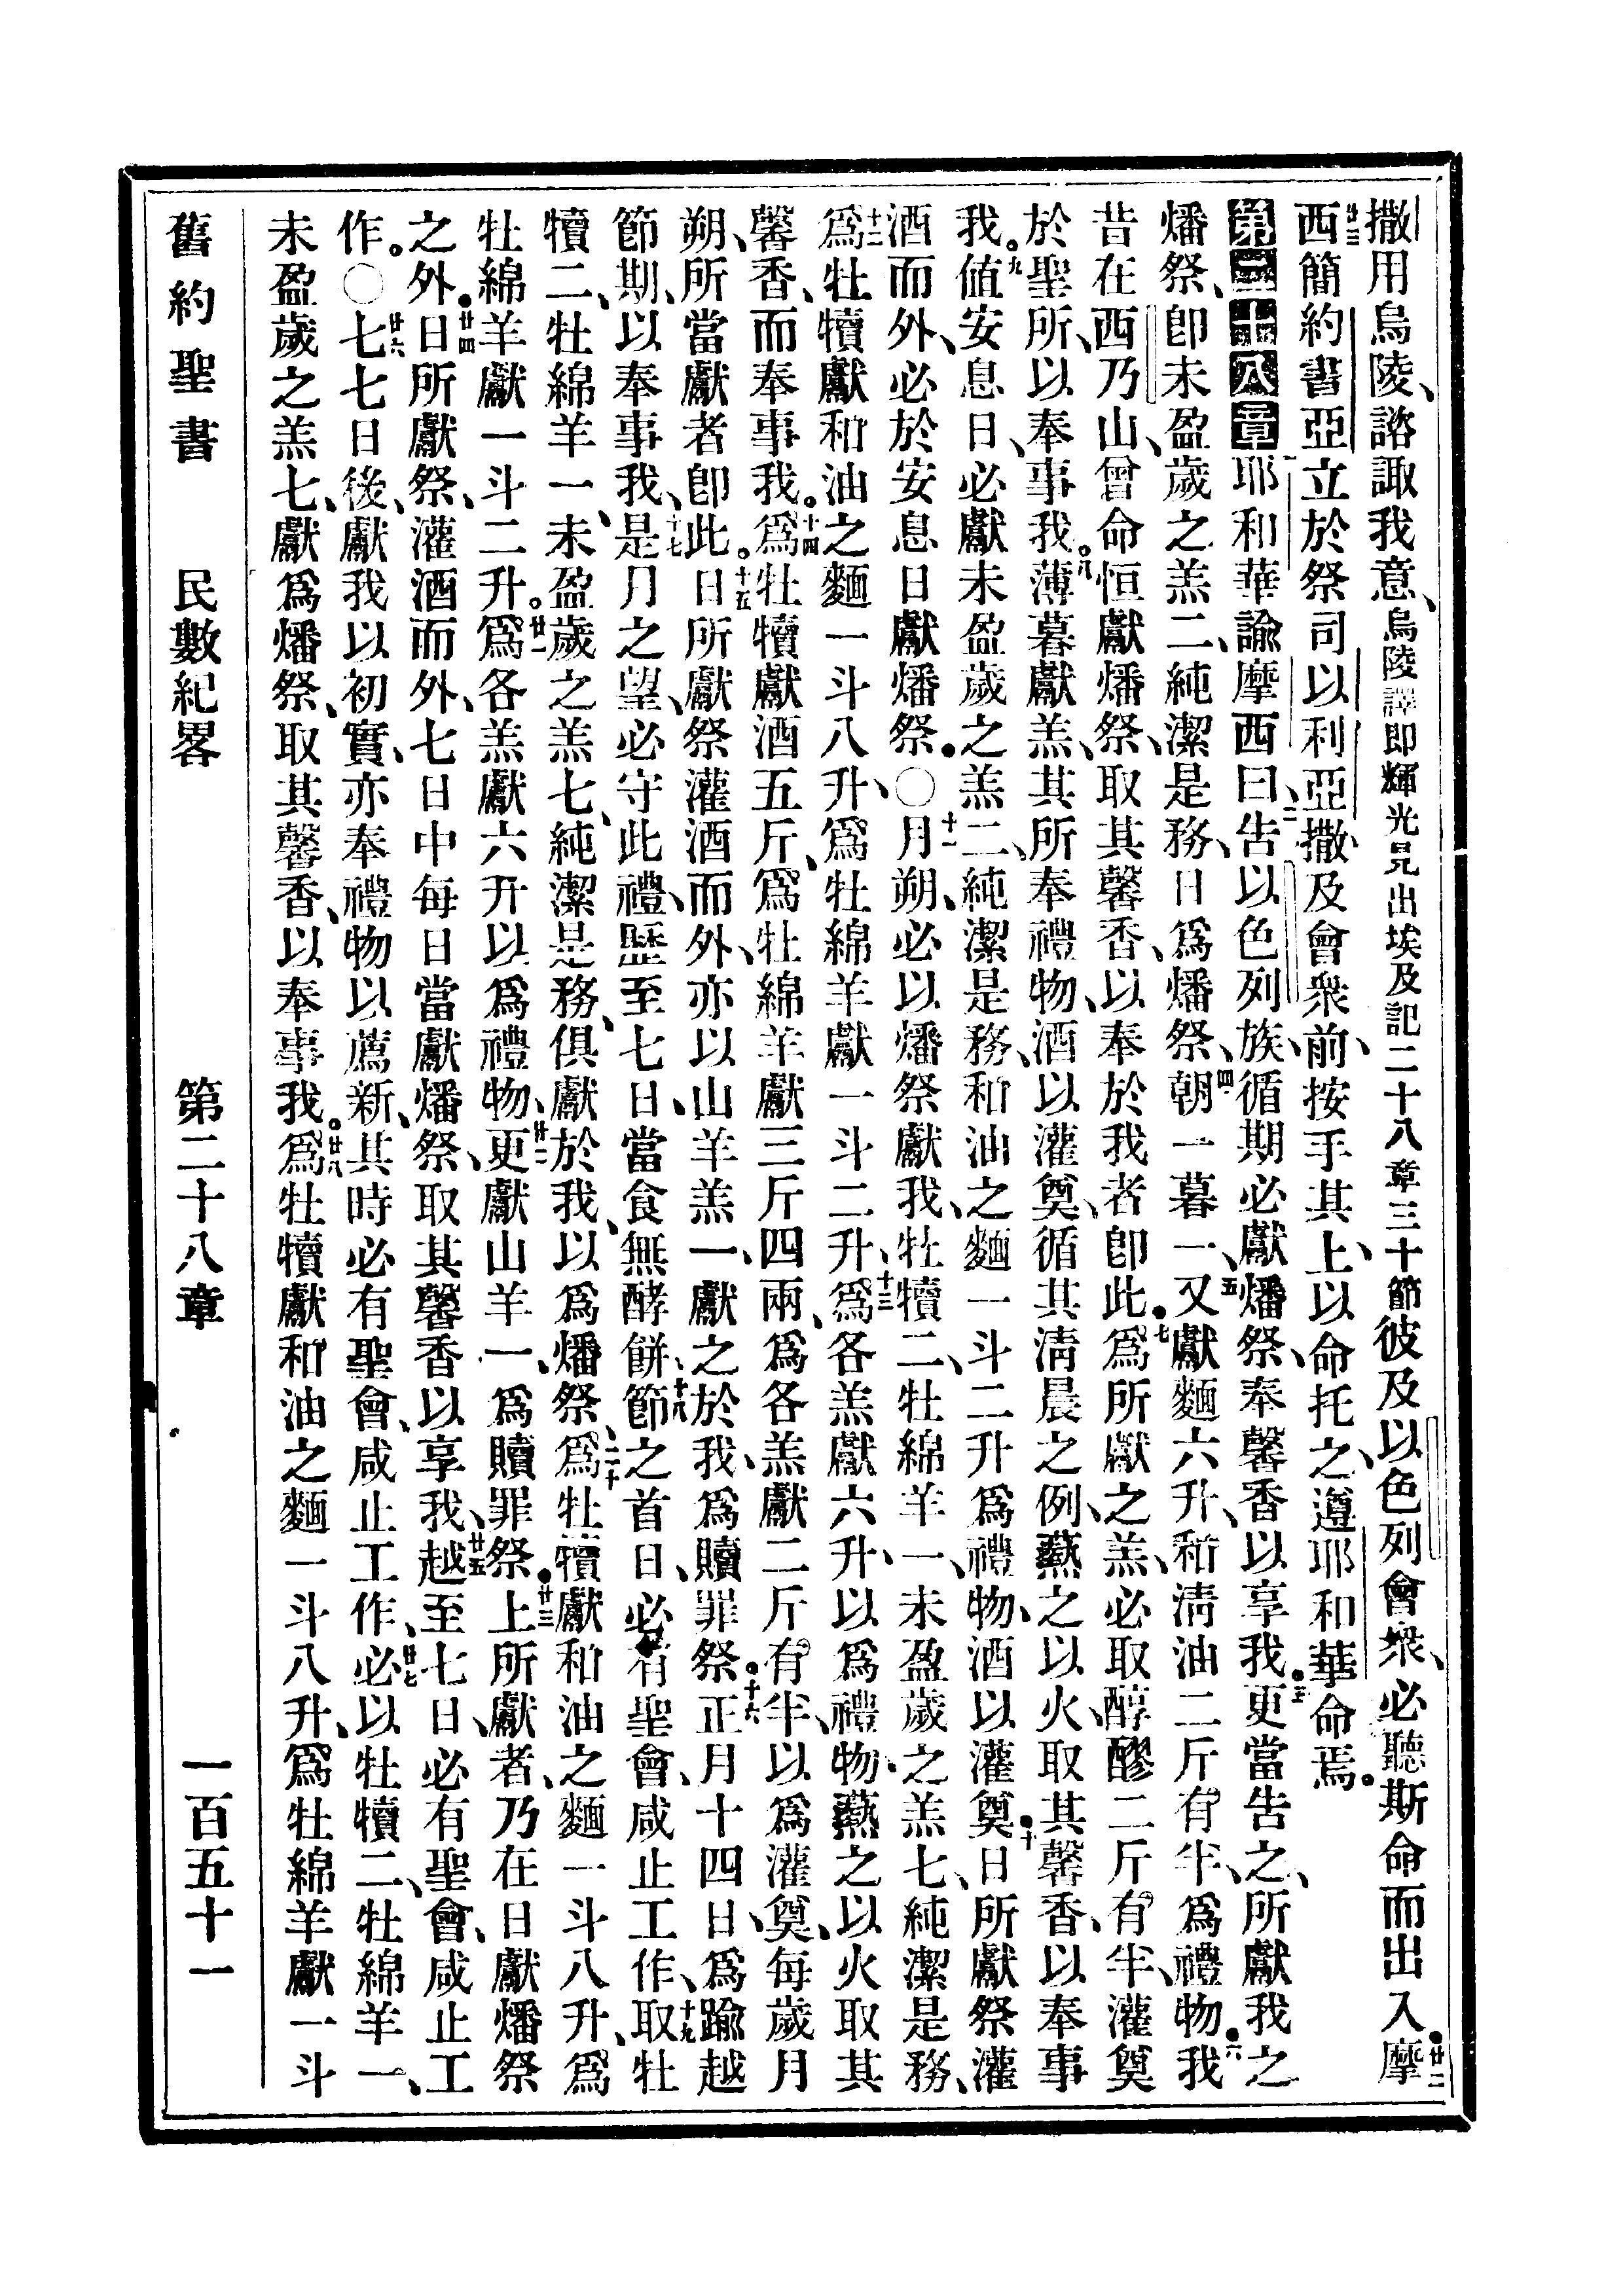 撒用烏陵、諮諏我意、烏陵譯即輝光見出埃及記二十八章三十節彼及以色列會衆、必聽斯命而出入。廿二摩
西簡約書亞立於祭司以利亞撒、及會衆前、廿三按手其上、以命托之、遵耶和華命焉。
第二十八章耶和華諭摩西曰、二告以色列族、循期必獻燔祭、奉馨香以享我。三更當告之、所獻我之
燔祭、卽未盈歲之羔二、純潔是務、日爲燔祭、四朝一暮一、五又獻麵六升、和淸油二斤有半、爲禮物。六我
昔在西乃山、曾命恒獻燔祭、取其馨香、以奉於我者卽此。七爲所獻之羔、必取醇醪二斤有半、灌奠
於聖所、以奉事我。八薄暮獻羔、其所奉禮物、酒以灌奠、循其淸晨之例、爇之以火、取其馨香、以奉事
我。九値安息日、必獻未盈歲之羔二、純潔是務、和油之麵一斗二升爲禮物、酒以灌奠。十日所獻祭灌
酒而外、必於安息日獻燔祭。〇十一月朔、必以燔祭獻我、牡犢二、牡綿羊一、未盈歲之羔七、純潔是務、
十二爲牡犢獻和油之麵一斗八升、爲牡綿羊獻一斗二升、十三爲各羔獻六升、以爲禮物、爇之以火、取其
馨香、而奉事我。十四爲牡犢獻酒五斤、爲牡綿羊獻三斤四兩、爲各羔獻二斤有半、以爲灌奠、每歲月
朔、所當獻者卽此。十五日所獻祭灌酒而外、亦以山羊羔一、獻之於我、爲贖罪祭。十六正月十四日、爲踰越
節期、以奉事我、十七是月之望、必守此禮、歷至七日、當食無酵餅、十八節之首日、必有聖會、咸止工作、十九取牡
犢二、牡綿羊一、未盈歲之羔七、純潔是務、俱獻於我、以爲燔祭、二十爲牡犢獻和油之麵一斗八升、爲
牡綿羊獻一斗二升。廿一爲各羔獻六升以爲禮物、廿二更獻山羊一、爲贖罪祭。廿三上所獻者、乃在日獻燔祭
之外。廿四日所獻祭、灌酒而外、七日中每日當獻燔祭、取其馨香以享我、廿五越至七日、必有聖會、咸止工
作。〇廿六七七日後、獻我以初實、亦奉禮物以薦新、其時必有聖會、咸止工作、廿七必以牡犢二、牡綿羊一、
未盈歲之羔七、獻爲燔祭、取其馨香、以奉事我。廿八爲牡犢獻和油之麵一斗八升、爲牡綿羊獻一斗
舊約聖書 民數紀畧 第二十八章 一百五十一